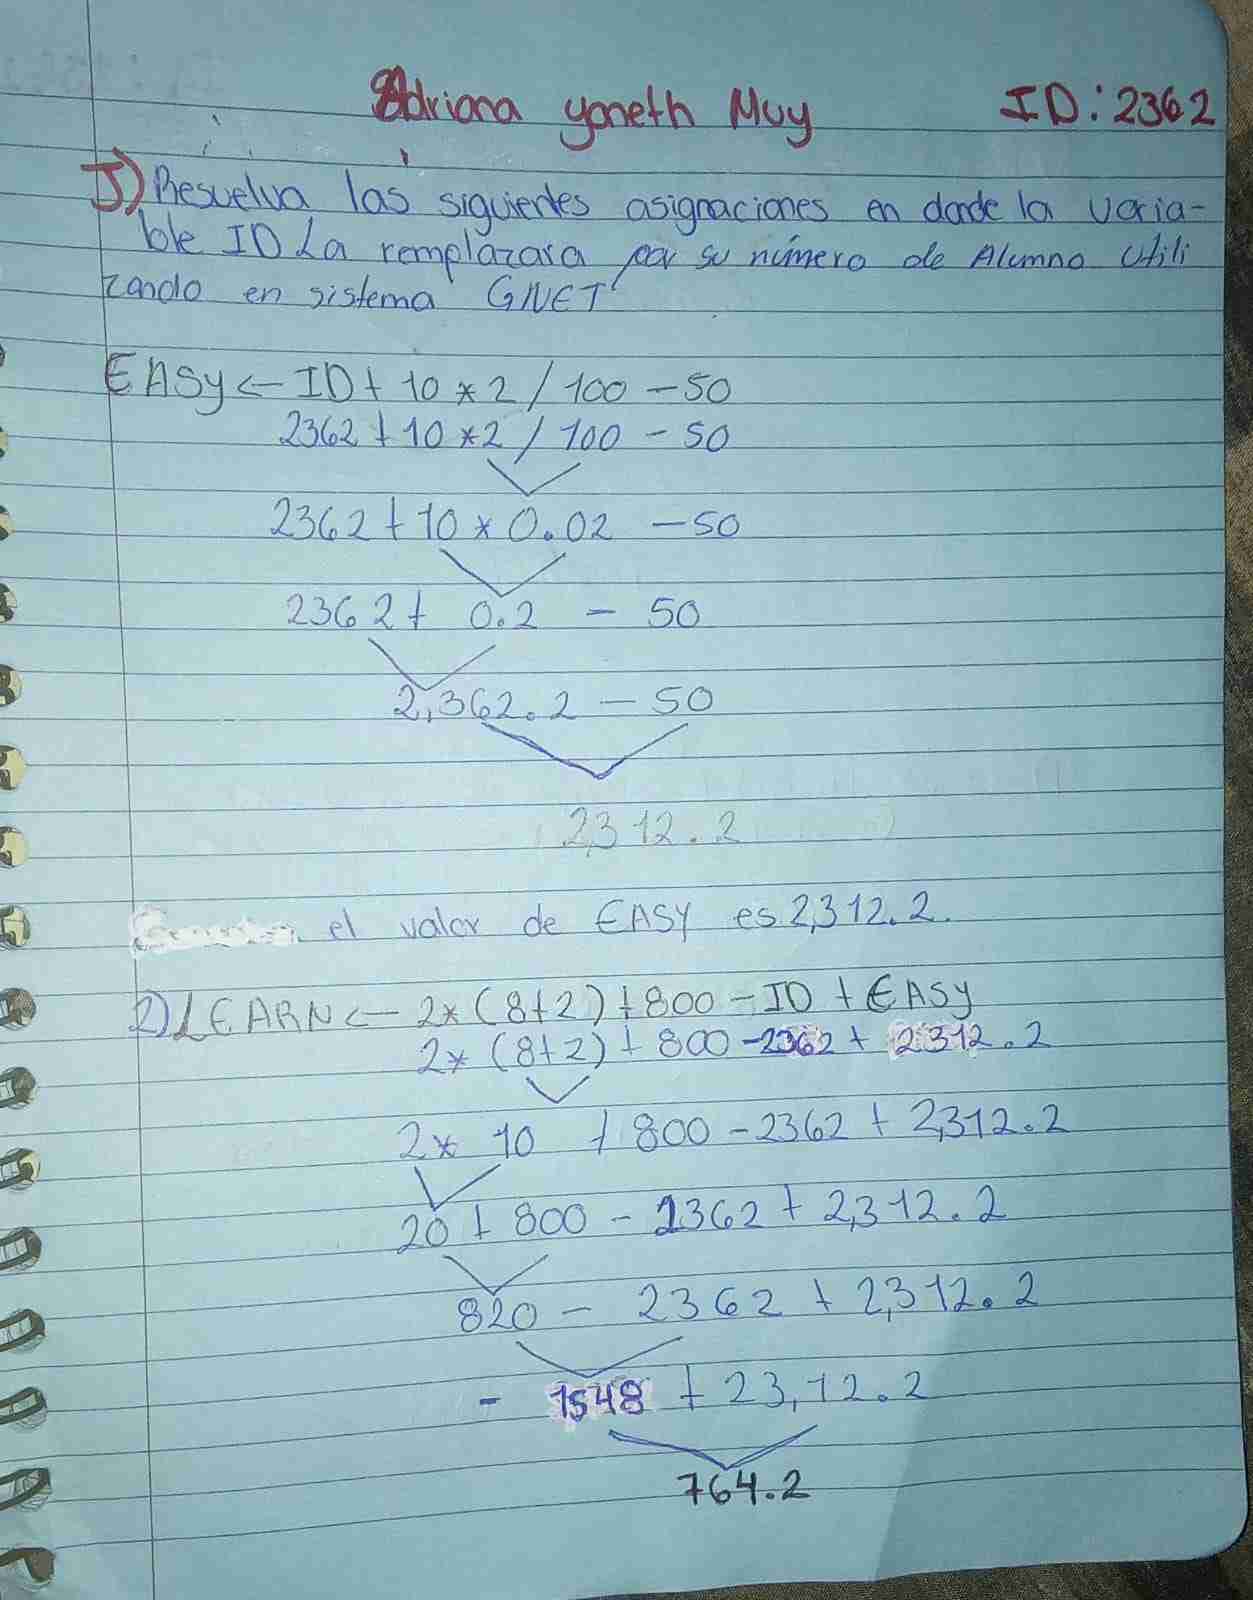 Adriana yoneth Muy ID: 2362
I) Resuelva las siguientes asignaciones en donde la varia-
ble ID La remplazara por su número de Alumno Utili
zando en sistema GNET
EASY ← ID + 10 * 2 / 100 - 50
2362 + 10 * 2 / 100 - 50
2362 + 10 * 0.02 - 50
2362 + 0.2 - 50
2,362.2 - 50
2,312.2
el valor de EASY es 2,312.2.
2) LEARN ← 2 * (8+2) + 800 - ID + EASY
2 * (8+2) + 800 - 2362 + 2312.2
2 * 10 + 800 - 2362 + 2,312.2
20 + 800 - 2362 + 2,312.2
820 - 2362 + 2,312.2
- 1548 + 23,12.2
764.2